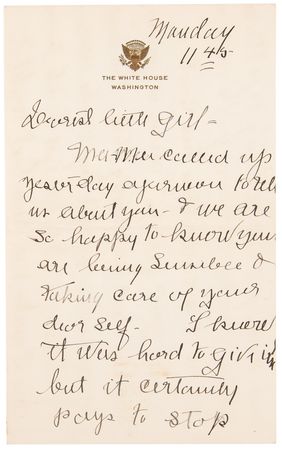 Monday
11 45
THE WHITE HOUSE
WASHINGTON
Dearest little girl -
Mamie called up
yesterday afternoon to tell
us about you - & we are
so happy to know you
are being sensible &
taking care of your
dear self. I know
it was hard to give in
but it certainly
pays to stop